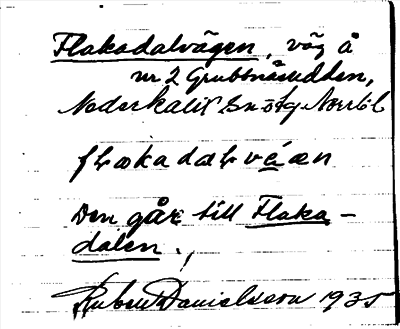 Flakadalvägen, väg å
nr 2 Grubbnäsudden,
Nederkalix Sn o tg Norrb. l.
flakadalvä́æn
Den går till Flaka-
dalen.
Rubin Danielsson 1935